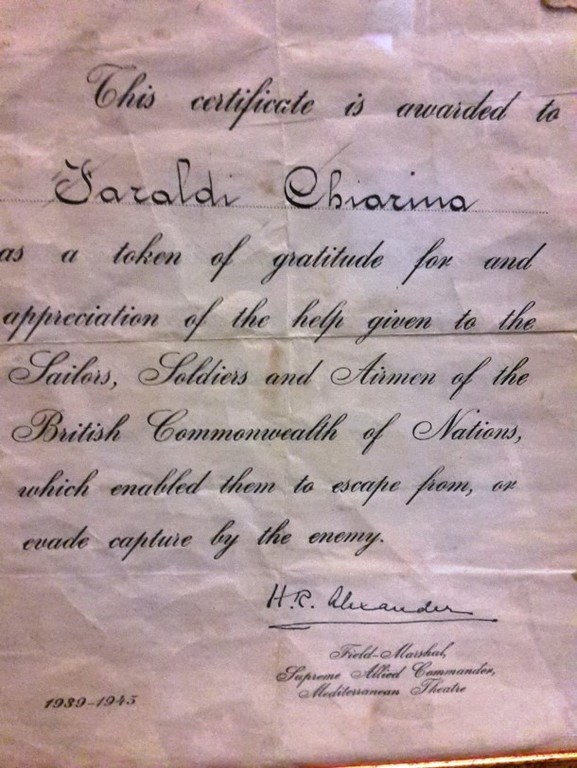 This certificate is awarded to
Faraldi Chiarina
as a token of gratitude for and
appreciation of the help given to the
Sailors, Soldiers and Airmen of the
British Commonwealth of Nations,
which enabled them to escape from, or
evade capture by the enemy.
H.R. Alexander
Field-Marshal,
Supreme Allied Commander,
Mediterranean Theatre
1939-1945